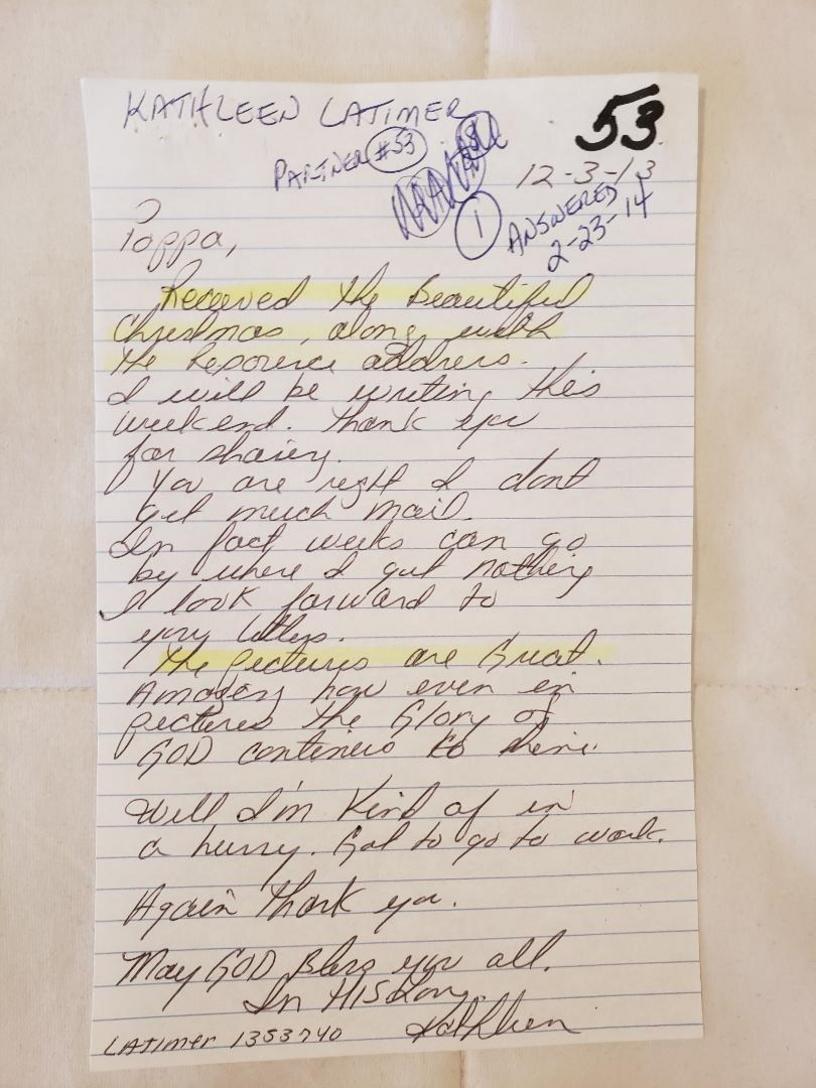 KATHLEEN LATIMER
PARTNER #53
53
12-3-13
1
ANSWERED
2-23-14
Poppa,
Received the Beautiful
Christmas, along with
the Resource address.
I will be writing this
weekend. Thank you
for sharing.
You are right I dont
get much mail.
In fact weeks can go
by where I get nothing
I look forward to
your letters.
The pictures are Great.
Amazing how even in
pictures the Glory of
GOD continues to shine.
Well I'm Kind of in
a hurry. Got to go to work.
Again thank you.
May GOD Bless you all.
In HIS Love,
Kathleen
LATIMER 1353740